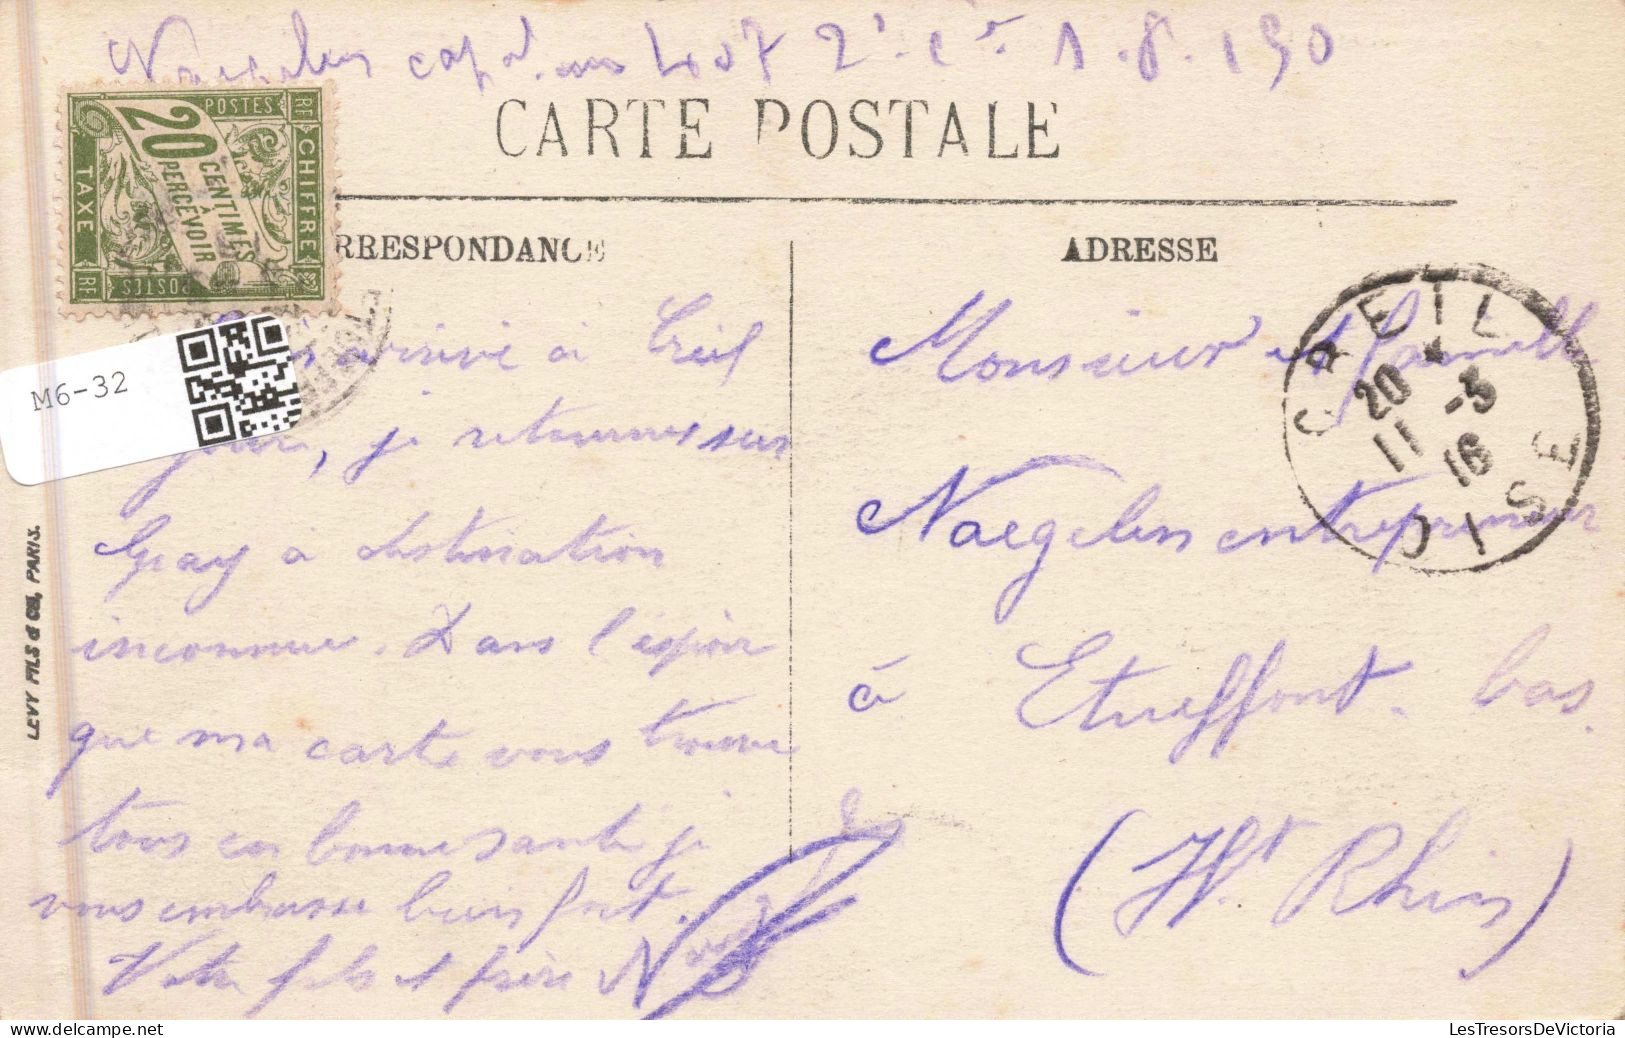 Naegelen capol au 407 2e Cie 1.8.190
CARTE POSTALE
POSTES RF CHIFFRE TAXE
20 CENTIMES À PERCEVOIR
RRESPONDANCE
ADRESSE
M6-32
LEVY FILS & Cie, PARIS.
CREIL
20 * -3
11 16
OISE
arrivé à Creil
, je retourne sur
Gray à destination
inconnue. Dans l'espoir
que ma carte vous trouve
tous en bonne santé je
vous embrasse bien fort.
Votre fils et frère
Monsieur et famille
Naegelen entrepreneur
à Etueffont-bas.
(Ht Rhin)
LesTresorsDeVictoria.com